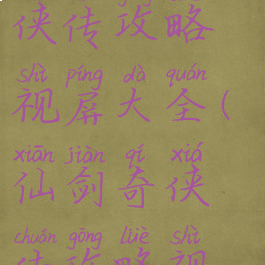 侠传攻略
shì píng dà quán
视屏大全（
xiān jiàn qí xiá
仙剑奇侠
chuán gōng lüè shì
传攻略视